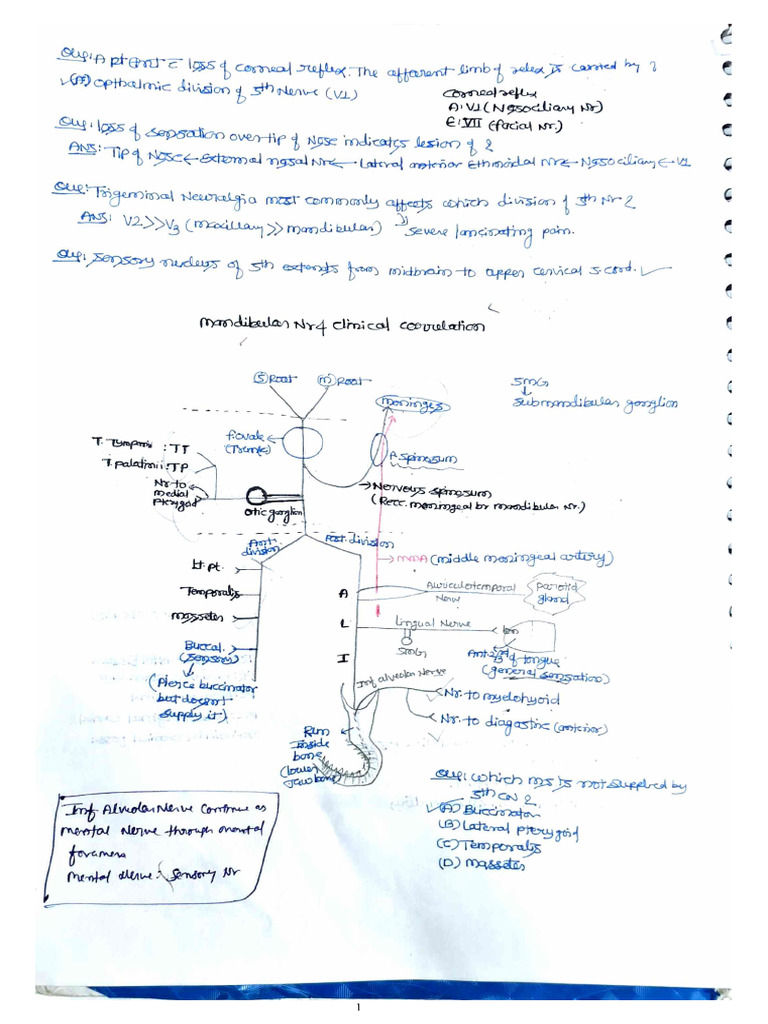 Que: A pt prnt c loss of corneal reflex. The afferent limb of relex is carried by ?
(A) opthalmic division of 5th Nerve (V1)
corneal reflex
A: V1 (Nasociliary Nr)
E: VII (facial Nr.)
Que: loss of sensation over tip of Nose indicates lesion of ?
ANS: Tip of Nose ← External nasal Nr ← Lateral anterior Ethmoidal Nr ← Nasociliary ← V1
Que: Trigeminal Neuralgia most commonly affects which division of 5th Nr ?
ANS: V2 >> V3 (maxillary >> mandibular)
severe lancinating pain.
Que: sensory nucleus of 5th extends from midbrain to upper cervical s. cord.
mandibular Nr & clinical coorulation
(S) Root
(m) Root
meninges
SMG
↓
submandibular ganglion
f. ovale
F. spinosum
T. Tympani : TT
T. palatinii : TP
Nr to
medial
pterygoid
otic ganglion
Nervous spinosum
(Recc. meningeal br mandibular Nr.)
Ant.
division
Post. division
MMA (middle meningeal artery)
Lt. pt.
Temporalis
masseter
Buccal.
(sensory)
(Pierce buccinator
but doesnt
supply it)
A
L
I
Auriculotemporal
Nerve
parotid
gland
Lingual Nerve
SMG
Ant 2/3 of tongue
(general sensation)
Inf alveolar Nerve
Nr. to myelohyoid
Nr. to diagastric (anterior)
Run
inside
bone
(lower
Jaw bone)
Inf Alveolar Nerve continue as
mental Nerve through mental
foramen
mental Nerve : sensory Nr
Que: which ms is not supplied by
5th CN ?
(A) Buccinator
(B) Lateral pterygoid
(C) Temporalis
(D) masseter
1